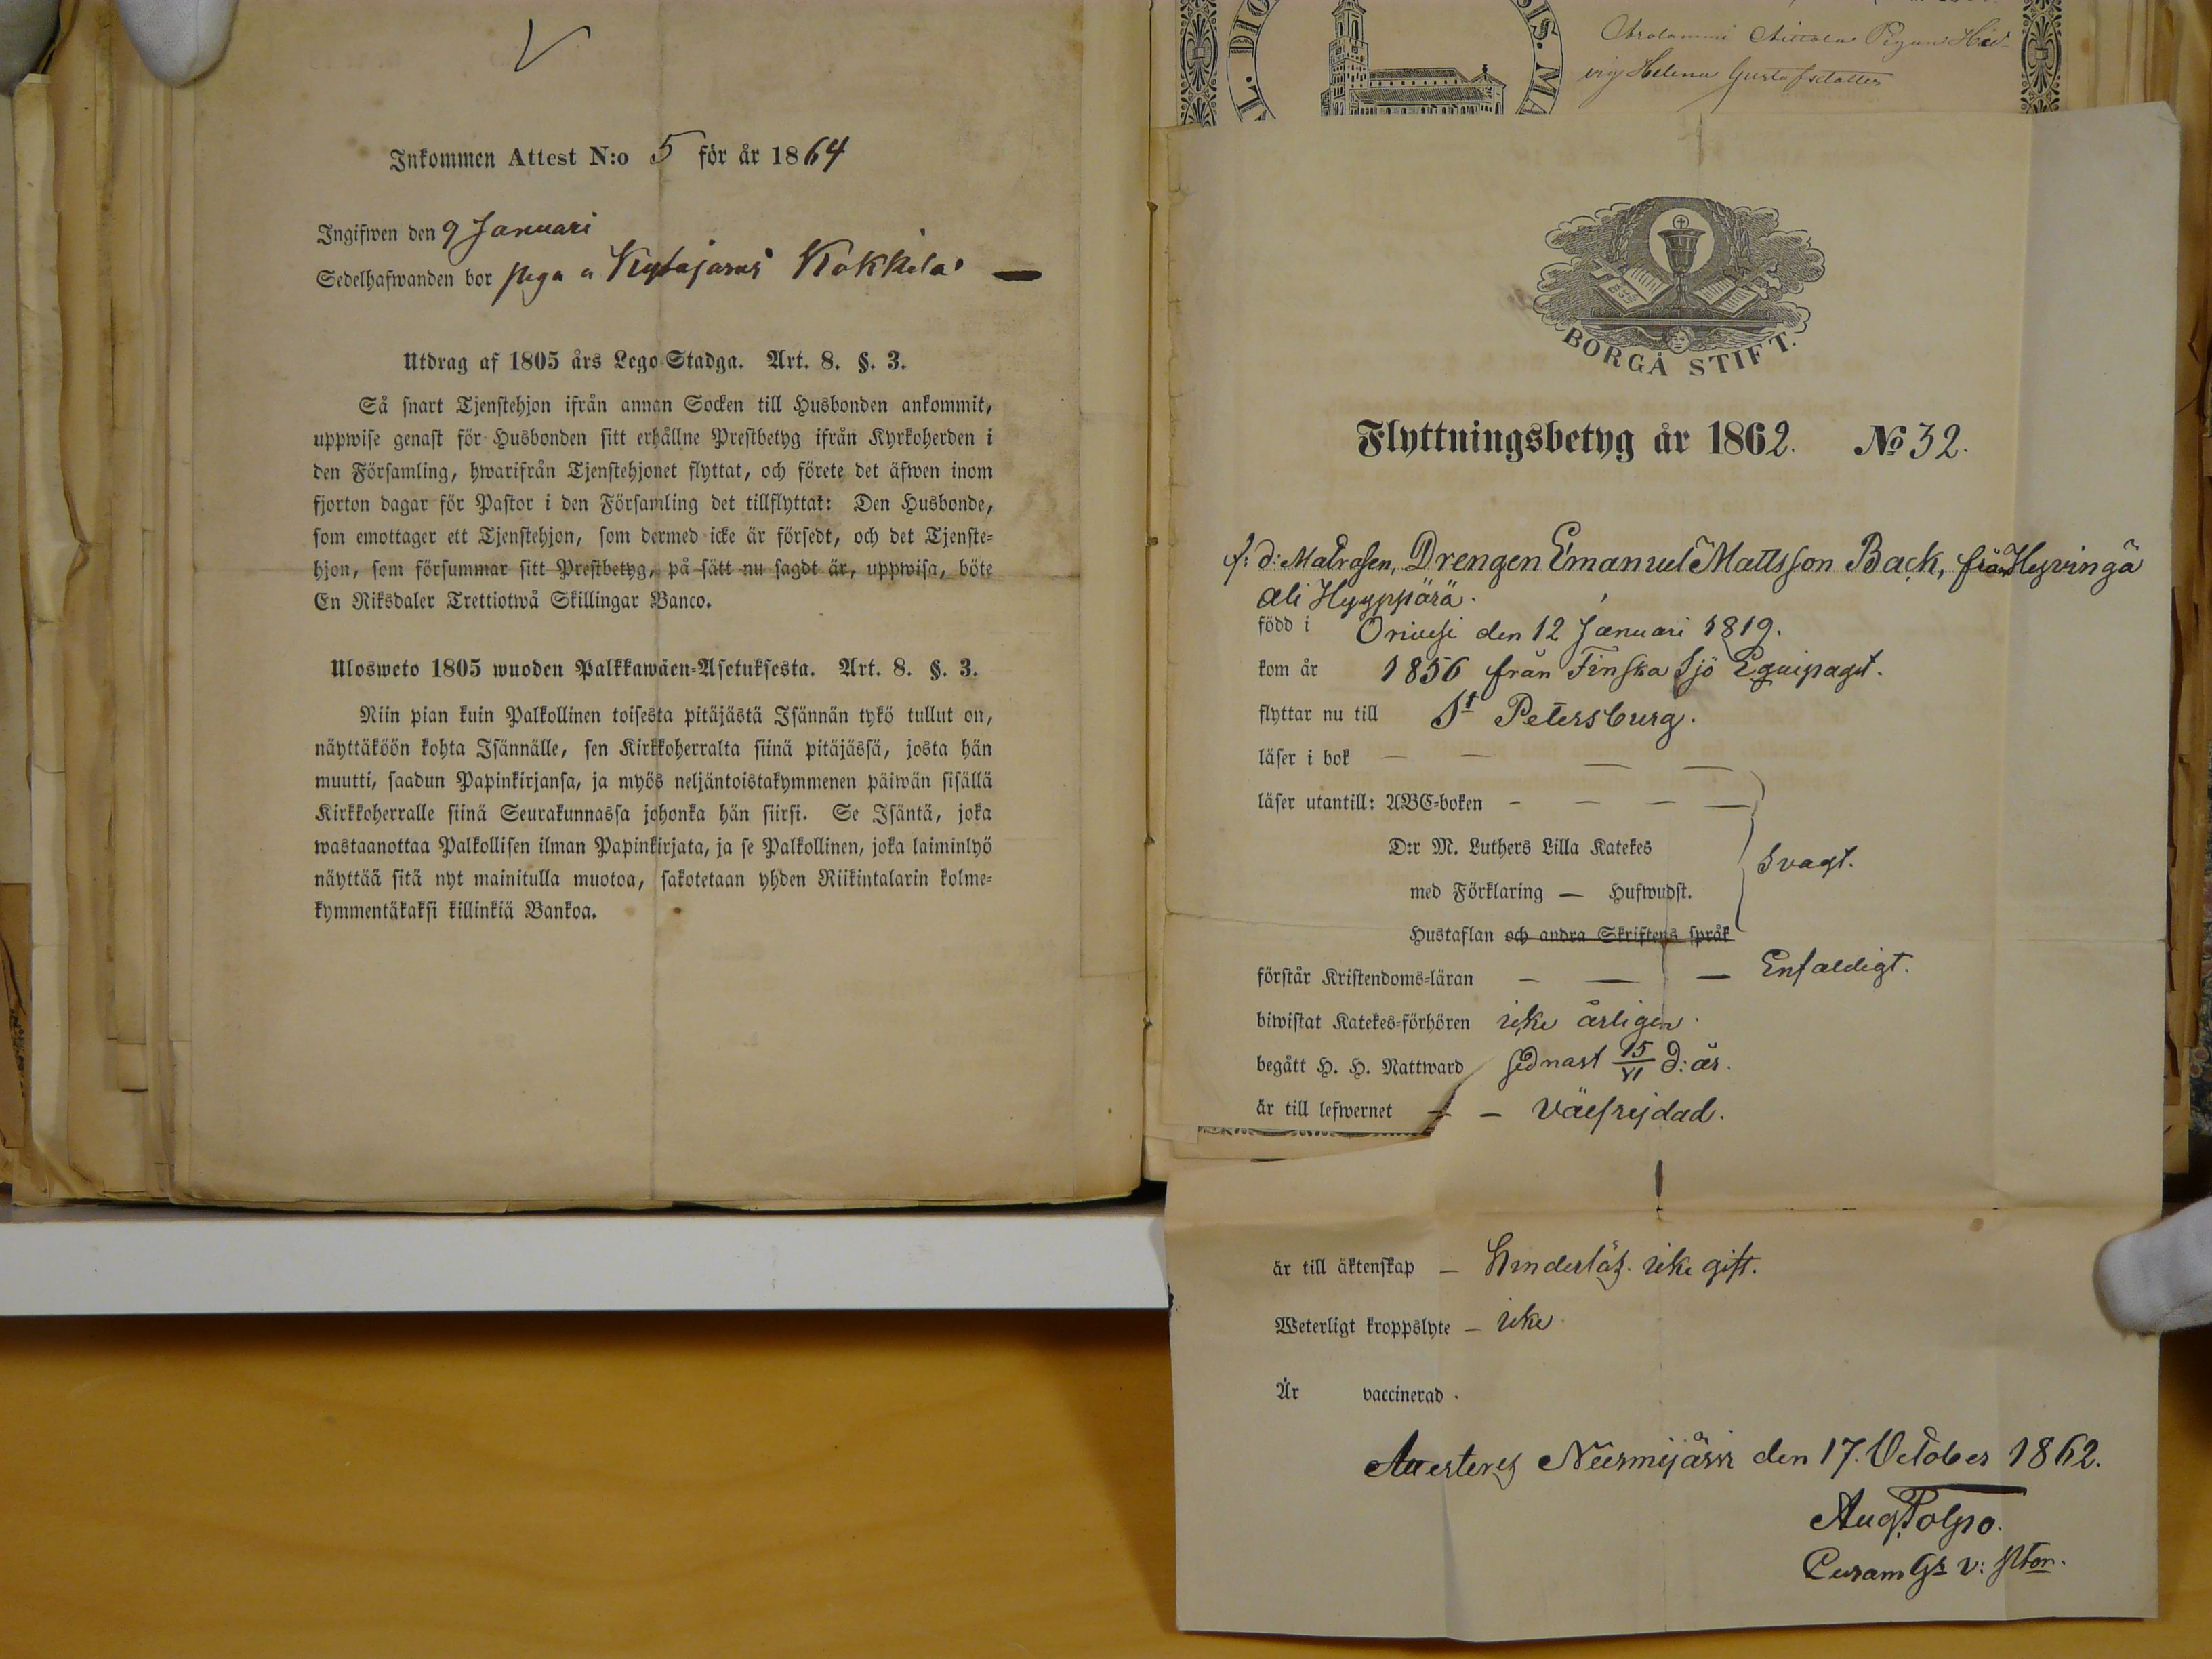 Inkommen Attest N:o 5 för år 1864
Ingifwen den 9 Januari
Sedelhafwanden bor piga a Kytäjärvi Kokkila
Utdrag af 1805 års Lego-Stadga. Art. 8. §. 3.
Så snart Tjenstehjon ifrån annan Socken till Husbonden ankommit,
uppwise genast för Husbonden sitt erhållne Prestbetyg ifrån Kyrkoherden i
den Församling, hwarifrån Tjenstehjonet flyttat, och förete det äfwen inom
fjorton dagar för Pastor i den Församling det tillflyttat: Den Husbonde,
som emottager ett Tjenstehjon, som dermed icke är försedt, och det Tjenste-
hjon, som försummar sitt Prestbetyg, på sätt nu sagdt är, uppwisa, böte
En Riksdaler Trettiotwå Skillingar Banco.
Ulosweto 1805 wuoden Palkkawäen-Asetuksesta. Art. 8. §. 3.
Niin pian kuin Palkollinen toisesta pitäjästä Isännän tykö tullut on,
näyttäköön kohta Isännälle, sen Kirkkoherralta siinä pitäjässä, josta hän
muutti, saadun Papinkirjansa, ja myös neljäntoistakymmenen päiwän sisällä
Kirkkoherralle siinä Seurakunnassa johonka hän siirsi. Se Isäntä, joka
wastaanottaa Palkollisen ilman Papinkirjata, ja se Palkollinen, joka laiminlyö
näyttää sitä nyt mainitulla muotoa, sakotetaan yhden Riikintalarin kolme-
kymmentäkaksi killinkiä Bankoa.
Pigan Hed-
vig Helena Gustafsdotter
BORGÅ STIFT.
Flyttningsbetyg år 1862. No 32.
f: d: Matrosen, Drengen Emanuel Mattsson Back, från Hyvingä
Ali Hyyppärä.
född i Orivesi den 12 Januari 1819.
kom år 1856 från Finska Sjö Equipaget.
flyttar nu till St Petersburg.
läser i bok — — — —
läser utantill: ABC-boken — — — —
D:r M. Luthers Lilla Katekes
Svagt.
med Förklaring — Hufwudst.
Hustaflan och andra Skriftens språk
förstår Kristendoms-läran — — — Enfaldigt.
biwistat Katekes-förhören icke årligen.
begått H. H. Nattward sednast 15/VI d: år.
är till lefwernet — — Välfrejdad.
är till äktenskap — Hinderlös. icke gift.
Weterligt kroppslyte — icke
Är vaccinerad.
Nurmijärvi den 17. October 1862.
Aug. Polpo.